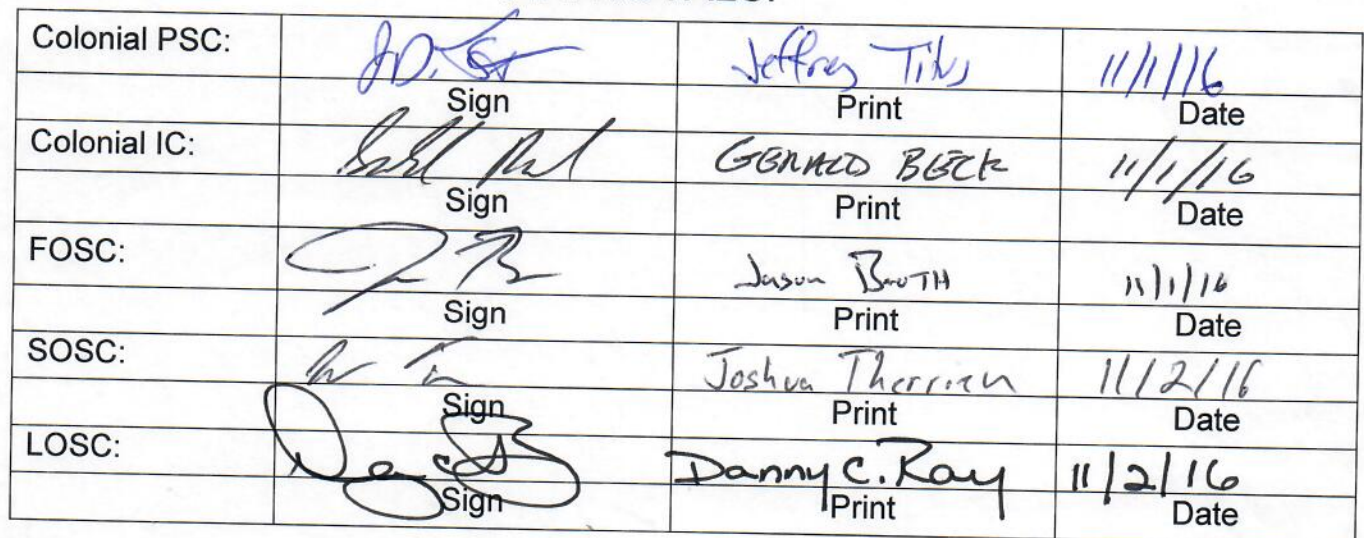 Colonial PSC: Jeffrey Titus 11/1/16
Sign Print Date
Colonial IC: GERALD BECK 11/1/16
Sign Print Date
FOSC: Jason Booth 11/1/16
Sign Print Date
SOSC: Joshua Therrien 11/2/16
Sign Print Date
LOSC: Danny C. Ray 11/2/16
Sign Print Date